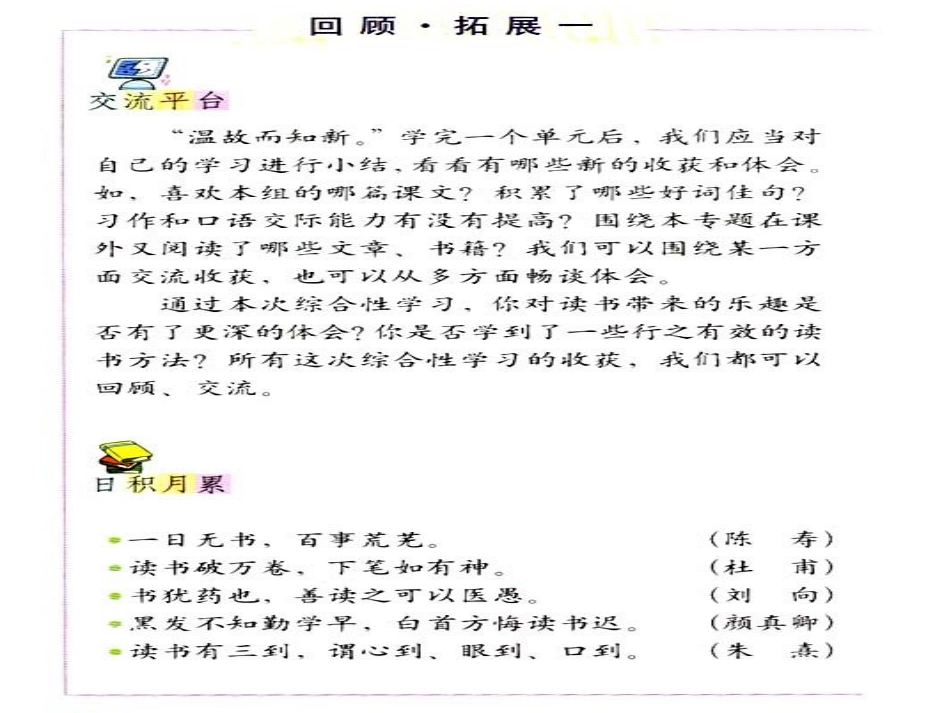 回顾·拓展一
交流平台
“温故而知新。”学完一个单元后，我们应当对
自己的学习进行小结，看看有哪些新的收获和体会。
如，喜欢本组的哪篇课文？积累了哪些好词佳句？
习作和口语交际能力有没有提高？围绕本专题在课
外又阅读了哪些文章、书籍？我们可以围绕某一方
面交流收获，也可以从多方面畅谈体会。
通过本次综合性学习，你对读书带来的乐趣是
否有了更深的体会？你是否学到了一些行之有效的读
书方法？所有这次综合性学习的收获，我们都可以
回顾、交流。
日积月累
一日无书，百事荒芜。（陈 寿）
读书破万卷，下笔如有神。（杜 甫）
书犹药也，善读之可以医愚。（刘 向）
黑发不知勤学早，白首方悔读书迟。（颜真卿）
读书有三到，谓心到、眼到、口到。（朱 熹）